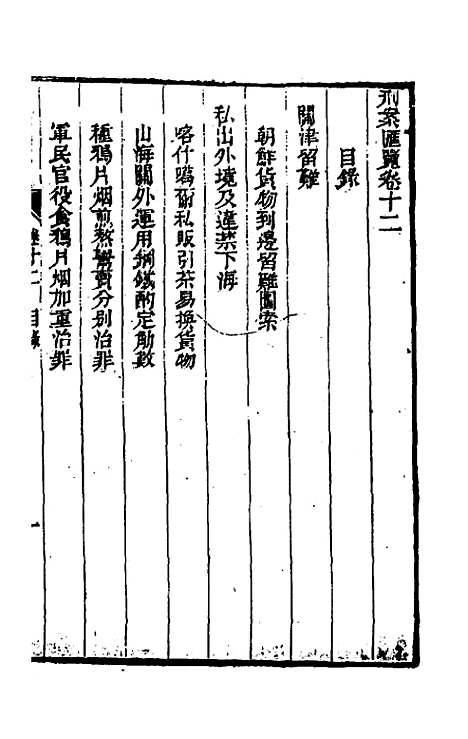 刑案匯覽卷十二
目錄
關津留難
朝鮮貨物到邊留難圖索
私出外境及違禁下海
喀什噶爾私販引茶易換貨物
山海關外運用銅鐵酌定觔數
種鴉片烟煎熬興賣分別治罪
軍民官役食鴉片烟加重治罪
卷十二 目錄
一